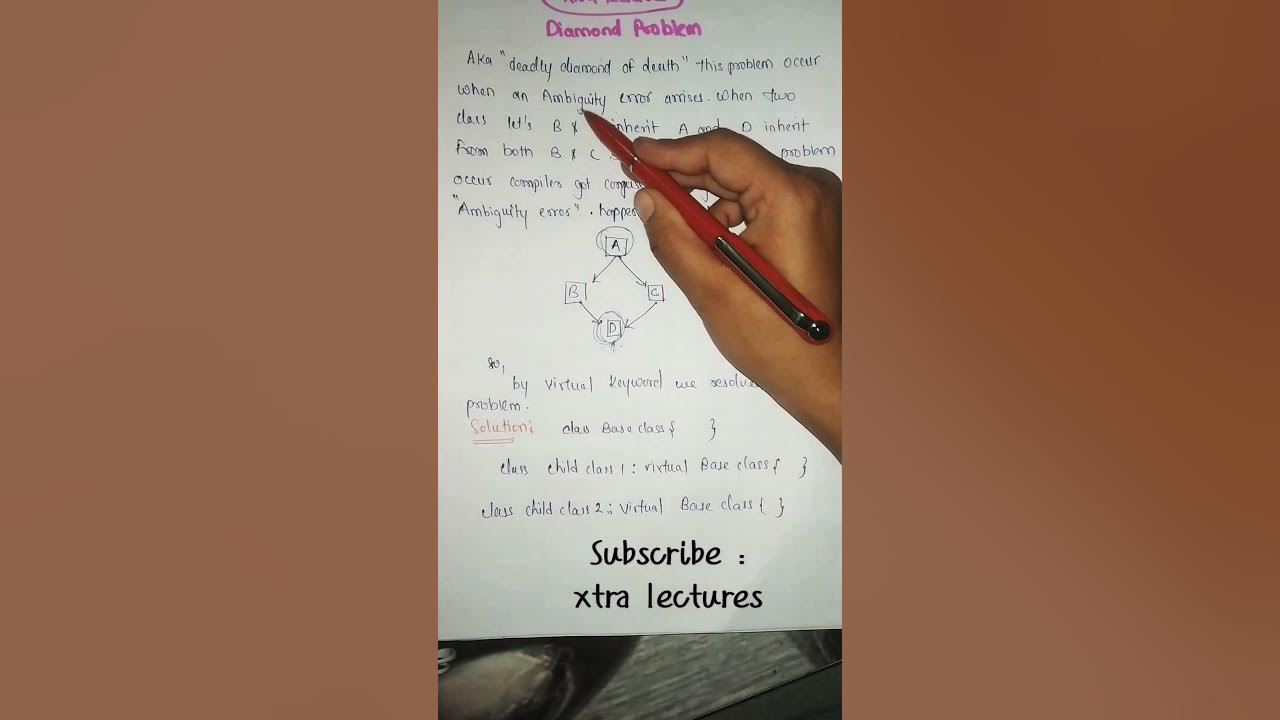 Diamond Problem
Aka "deadly diamond of death" this problem occur
when an Ambiguity error arrises. when two
class let's B & inherit A and D inherit
from both B & C problem
occur compiler got
"Ambiguity error". happe
A
B C
D
so,
by virtual keyword we resolve
problem.
Solution: class Base class { }
class child class 1 : virtual Base class { }
class child class 2 : virtual Base class { }
Subscribe :
xtra lectures